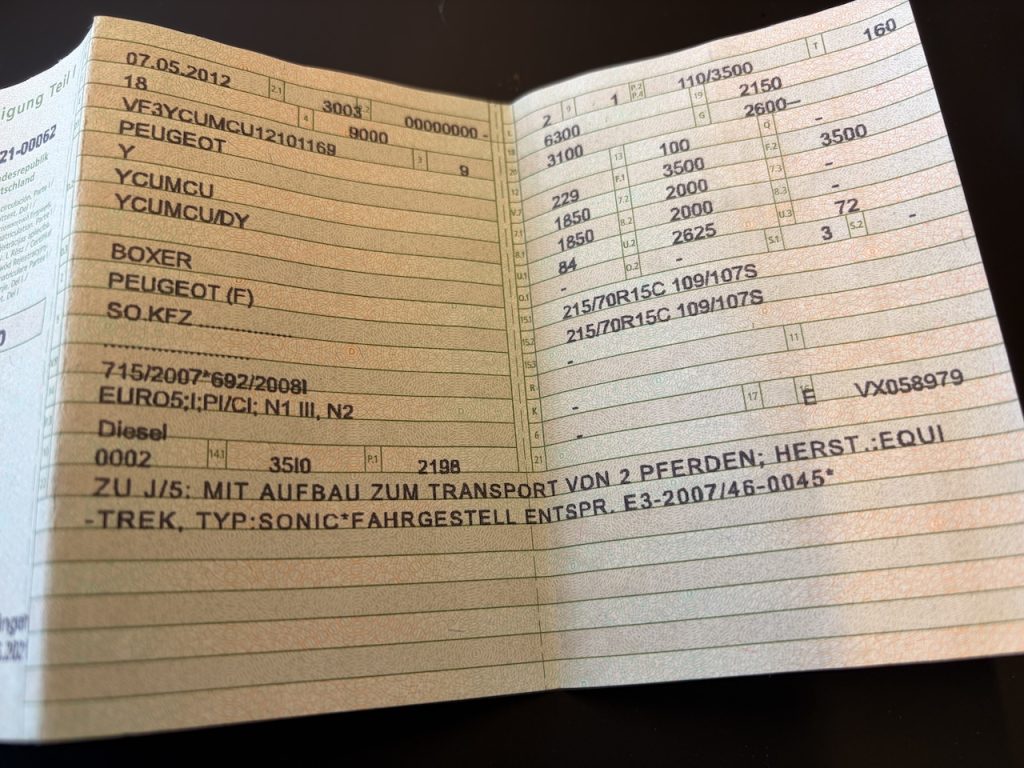 igung Teil I
21-00062
desrepublik
tschland
07.05.2012 2.1 3003 2.2 00000000 -
18 4 9000
VF3YCUMCU12101169 3 9
PEUGEOT
Y
YCUMCU
YCUMCU/DY
BOXER
PEUGEOT (F)
SO.KFZ ................
....................
715/2007*692/2008I
EURO5;I;PI/CI; N1 III, N2
Diesel
0002 14.1 35I0 P.1 2198
L 2 9 1 P.2 P.4 110/3500 T 160
18 6300 19 2150
20 3100 G 2600--
12 - 13 100 Q -
V.7 229 F.1 3500 F.2 3500
7.1 1850 7.2 2000 7.3 -
8.1 1850 8.2 2000 8.3 -
U.1 84 U.2 2625 U.3 72
O.1 - O.2 - S.1 3 S.2 -
15.1 215/70R15C 109/107S
15.2 215/70R15C 109/107S
15.3 -
R 11
K -
6 - 17 E 16 VX058979
21
ZU J/5: MIT AUFBAU ZUM TRANSPORT VON 2 PFERDEN; HERST.:EQUI
-TREK, TYP:SONIC*FAHRGESTELL ENTSPR. E3-2007/46-0045*
ingen
.2021